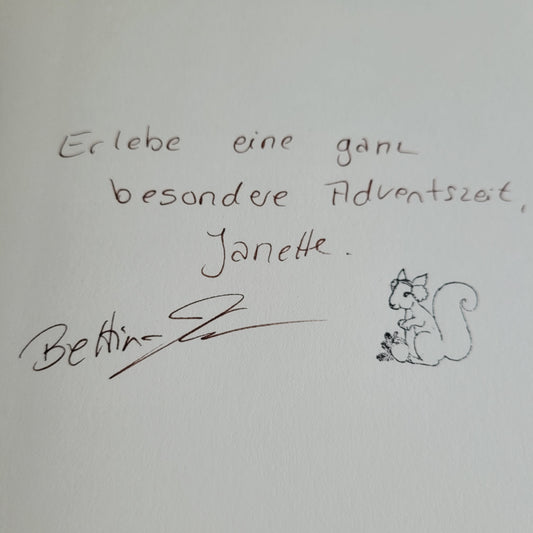 Erlebe eine ganz
besondere Adventszeit,
Janette.
Bettina